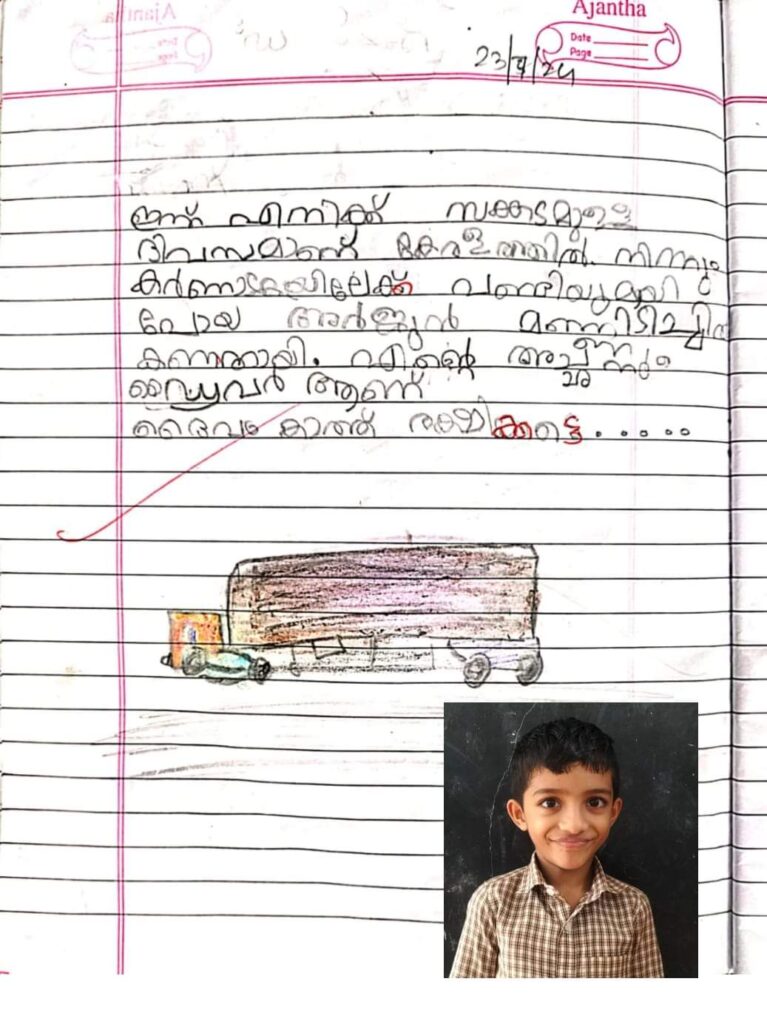 Ajantha
Date
Page
23/7/24
ഇന്ന് എനിക്ക് സങ്കടമുള്ള
ദിവസമാണ് കേരളത്തിൽ നിന്നും
കർണാടകയിലേക്ക് വണ്ടിയുമായി
പോയ അർജുൻ മണ്ണിടിച്ചി
കാണാതായി. എന്റെ അച്ഛനും
ഡ്രൈവർ ആണ്
ദൈവം കാത്ത് രക്ഷിക്കട്ടെ.....